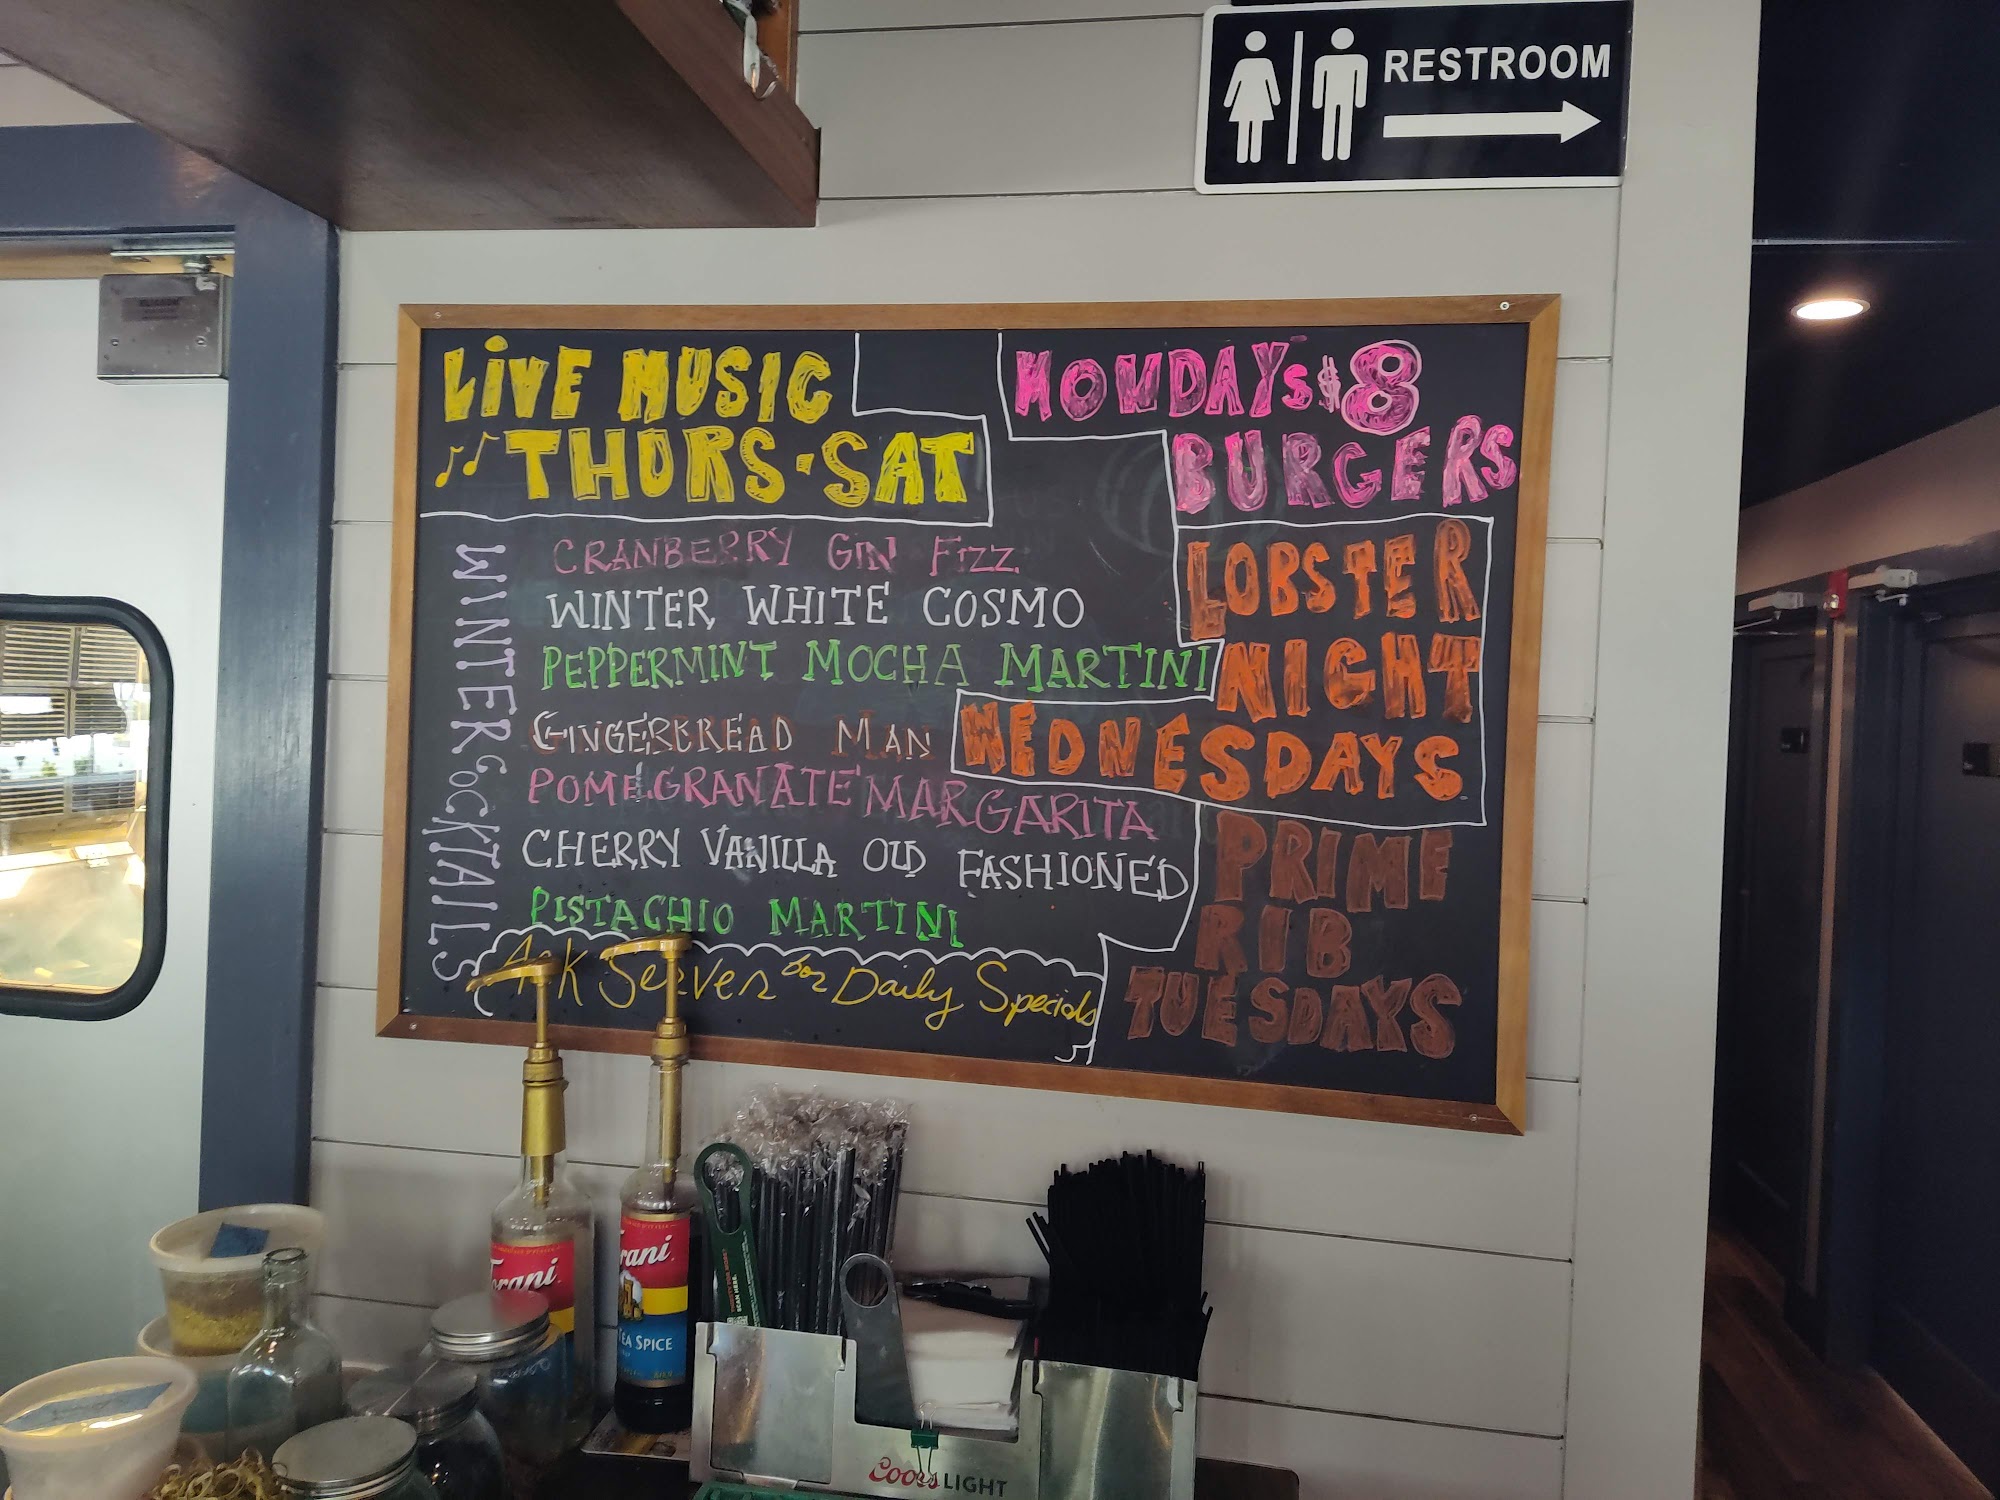 RESTROOM
LIVE MUSIC
THURS·SAT
MONDAYS $8
BURGERS
LOBSTER
NIGHT
WEDNESDAYS
PRIME
RIB
TUESDAYS
WINTER COCKTAILS
CRANBERRY GIN FIZZ
WINTER WHITE COSMO
PEPPERMINT MOCHA MARTINI
GINGERBREAD MAN
POMEGRANATE MARGARITA
CHERRY VANILLA OLD FASHIONED
PISTACHIO MARTINI
Ask Server for Daily Specials
Torani
rani
EA SPICE
SCAN HERE
Coors LIGHT